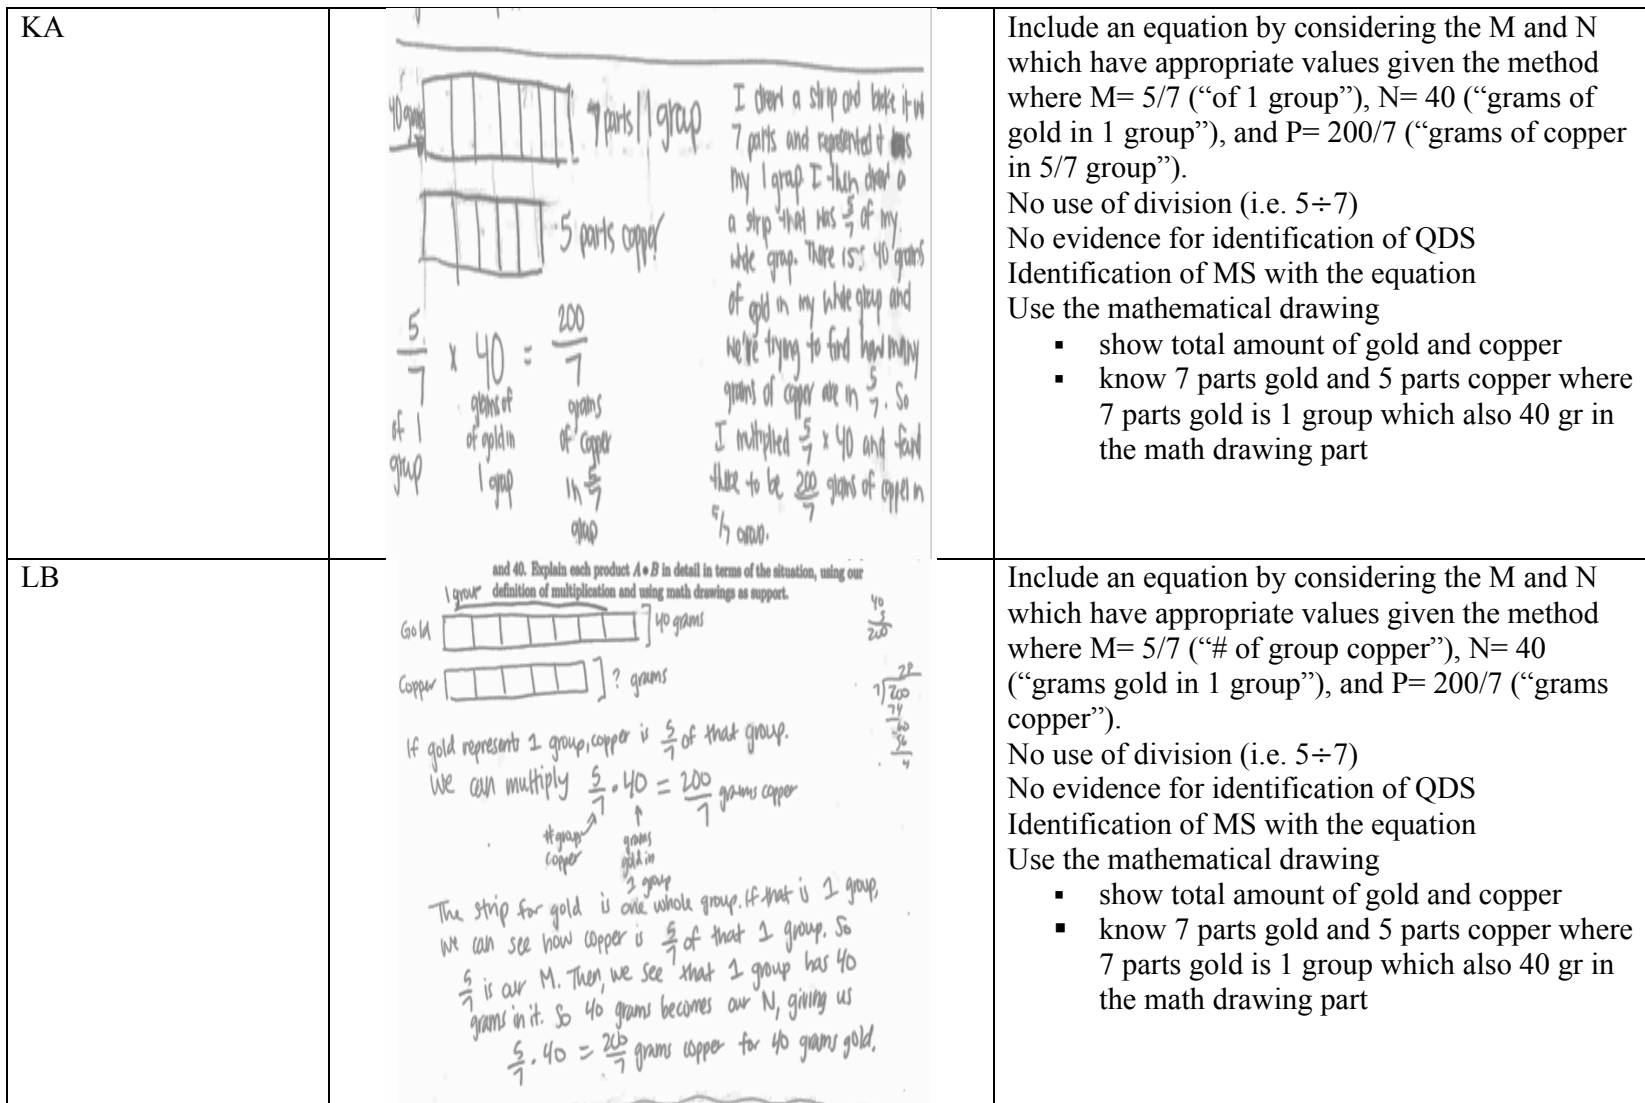 KA
40 grams
7 parts | 1 group
5 parts copper
5/7 x 40 = 200/7
of 1 group
grams of of gold in 1 group
grams of copper in 5/7 group
I drew a strip and broke it in
7 parts and represented it as
my 1 group. I then drew a
a strip that was 5/7 of my
whole group. There is 40 grams
of gold in my whole group and
we're trying to find how many
grams of copper are in 5/7. So
I multiplied 5/7 x 40 and found
there to be 200/7 grams of copper in
5/7 group.
Include an equation by considering the M and N
which have appropriate values given the method
where M= 5/7 (“of 1 group”), N= 40 (“grams of
gold in 1 group”), and P= 200/7 (“grams of copper
in 5/7 group”).
No use of division (i.e. 5÷7)
No evidence for identification of QDS
Identification of MS with the equation
Use the mathematical drawing
▪ show total amount of gold and copper
▪ know 7 parts gold and 5 parts copper where
7 parts gold is 1 group which also 40 gr in
the math drawing part
LB
and 40. Explain each product A • B in detail in terms of the situation, using our
definition of multiplication and using math drawings as support.
1 group
Gold
40 grams
Copper
? grams
40
5
200
28
7)200
If gold represents 1 group, copper is 5/7 of that group.
We can multiply 5/7 • 40 = 200/7 grams copper
# group copper
grams gold in 1 group
The strip for gold is one whole group. If that is 1 group,
we can see how copper is 5/7 of that 1 group. So
5/7 is our M. Then, we see that 1 group has 40
grams in it. So 40 grams becomes our N, giving us
5/7 • 40 = 200/7 grams copper for 40 grams gold.
Include an equation by considering the M and N
which have appropriate values given the method
where M= 5/7 (“# of group copper”), N= 40
(“grams gold in 1 group”), and P= 200/7 (“grams
copper”).
No use of division (i.e. 5÷7)
No evidence for identification of QDS
Identification of MS with the equation
Use the mathematical drawing
▪ show total amount of gold and copper
▪ know 7 parts gold and 5 parts copper where
7 parts gold is 1 group which also 40 gr in
the math drawing part